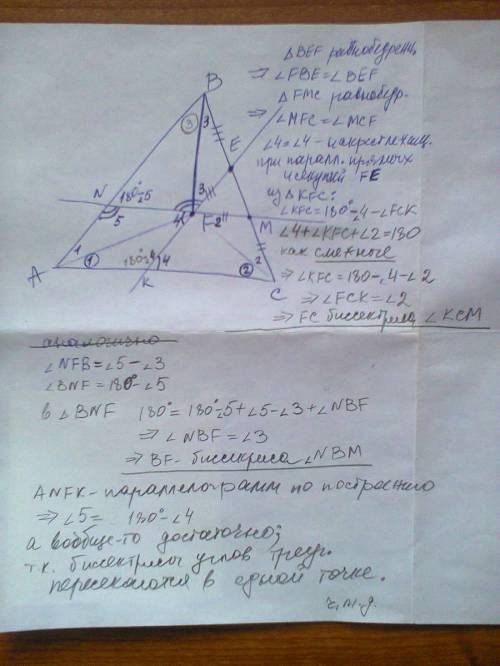 ΔBEF равнобедрен.
⇒ ∠FBE=∠BEF
ΔFMC равнобедр-
⇒ ∠MFC=∠MCF
∠4=∠4 - накрест лежащ.
при паралл. прямых
и секущей FE
из ΔKFC:
∠KFC=180°-∠4-∠FCK
∠4+∠KFC+∠2=180
как смежные
⇒ ∠KFC=180-∠4-∠2
⇒ ∠FCK=∠2
⇒ FC биссектриса ∠KCM
B
3
3
E
N
180°-∠5
5
3
4
F
2
M
A
1
1
180°-∠4
4
2
2
K
C
аналогично
∠NFB=∠5-∠3
∠BNF=180°-∠5
в ∠BNF 180°=180°-∠5+∠5-∠3+∠NBF
⇒ ∠NBF=∠3
⇒ BF-биссектриса ∠NBM
ANFK-параллелограмм по построению
⇒ ∠5= 180°-∠4
а вообще-то достаточно;
т.к. биссектрисы углов треуг.
пересекаются в одной точке.
ч.т.д.